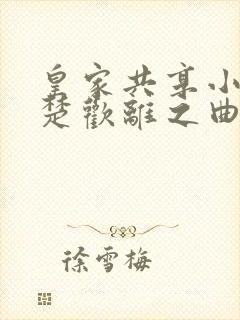 皇家共享小
楚歡離之曲
徐雪梅